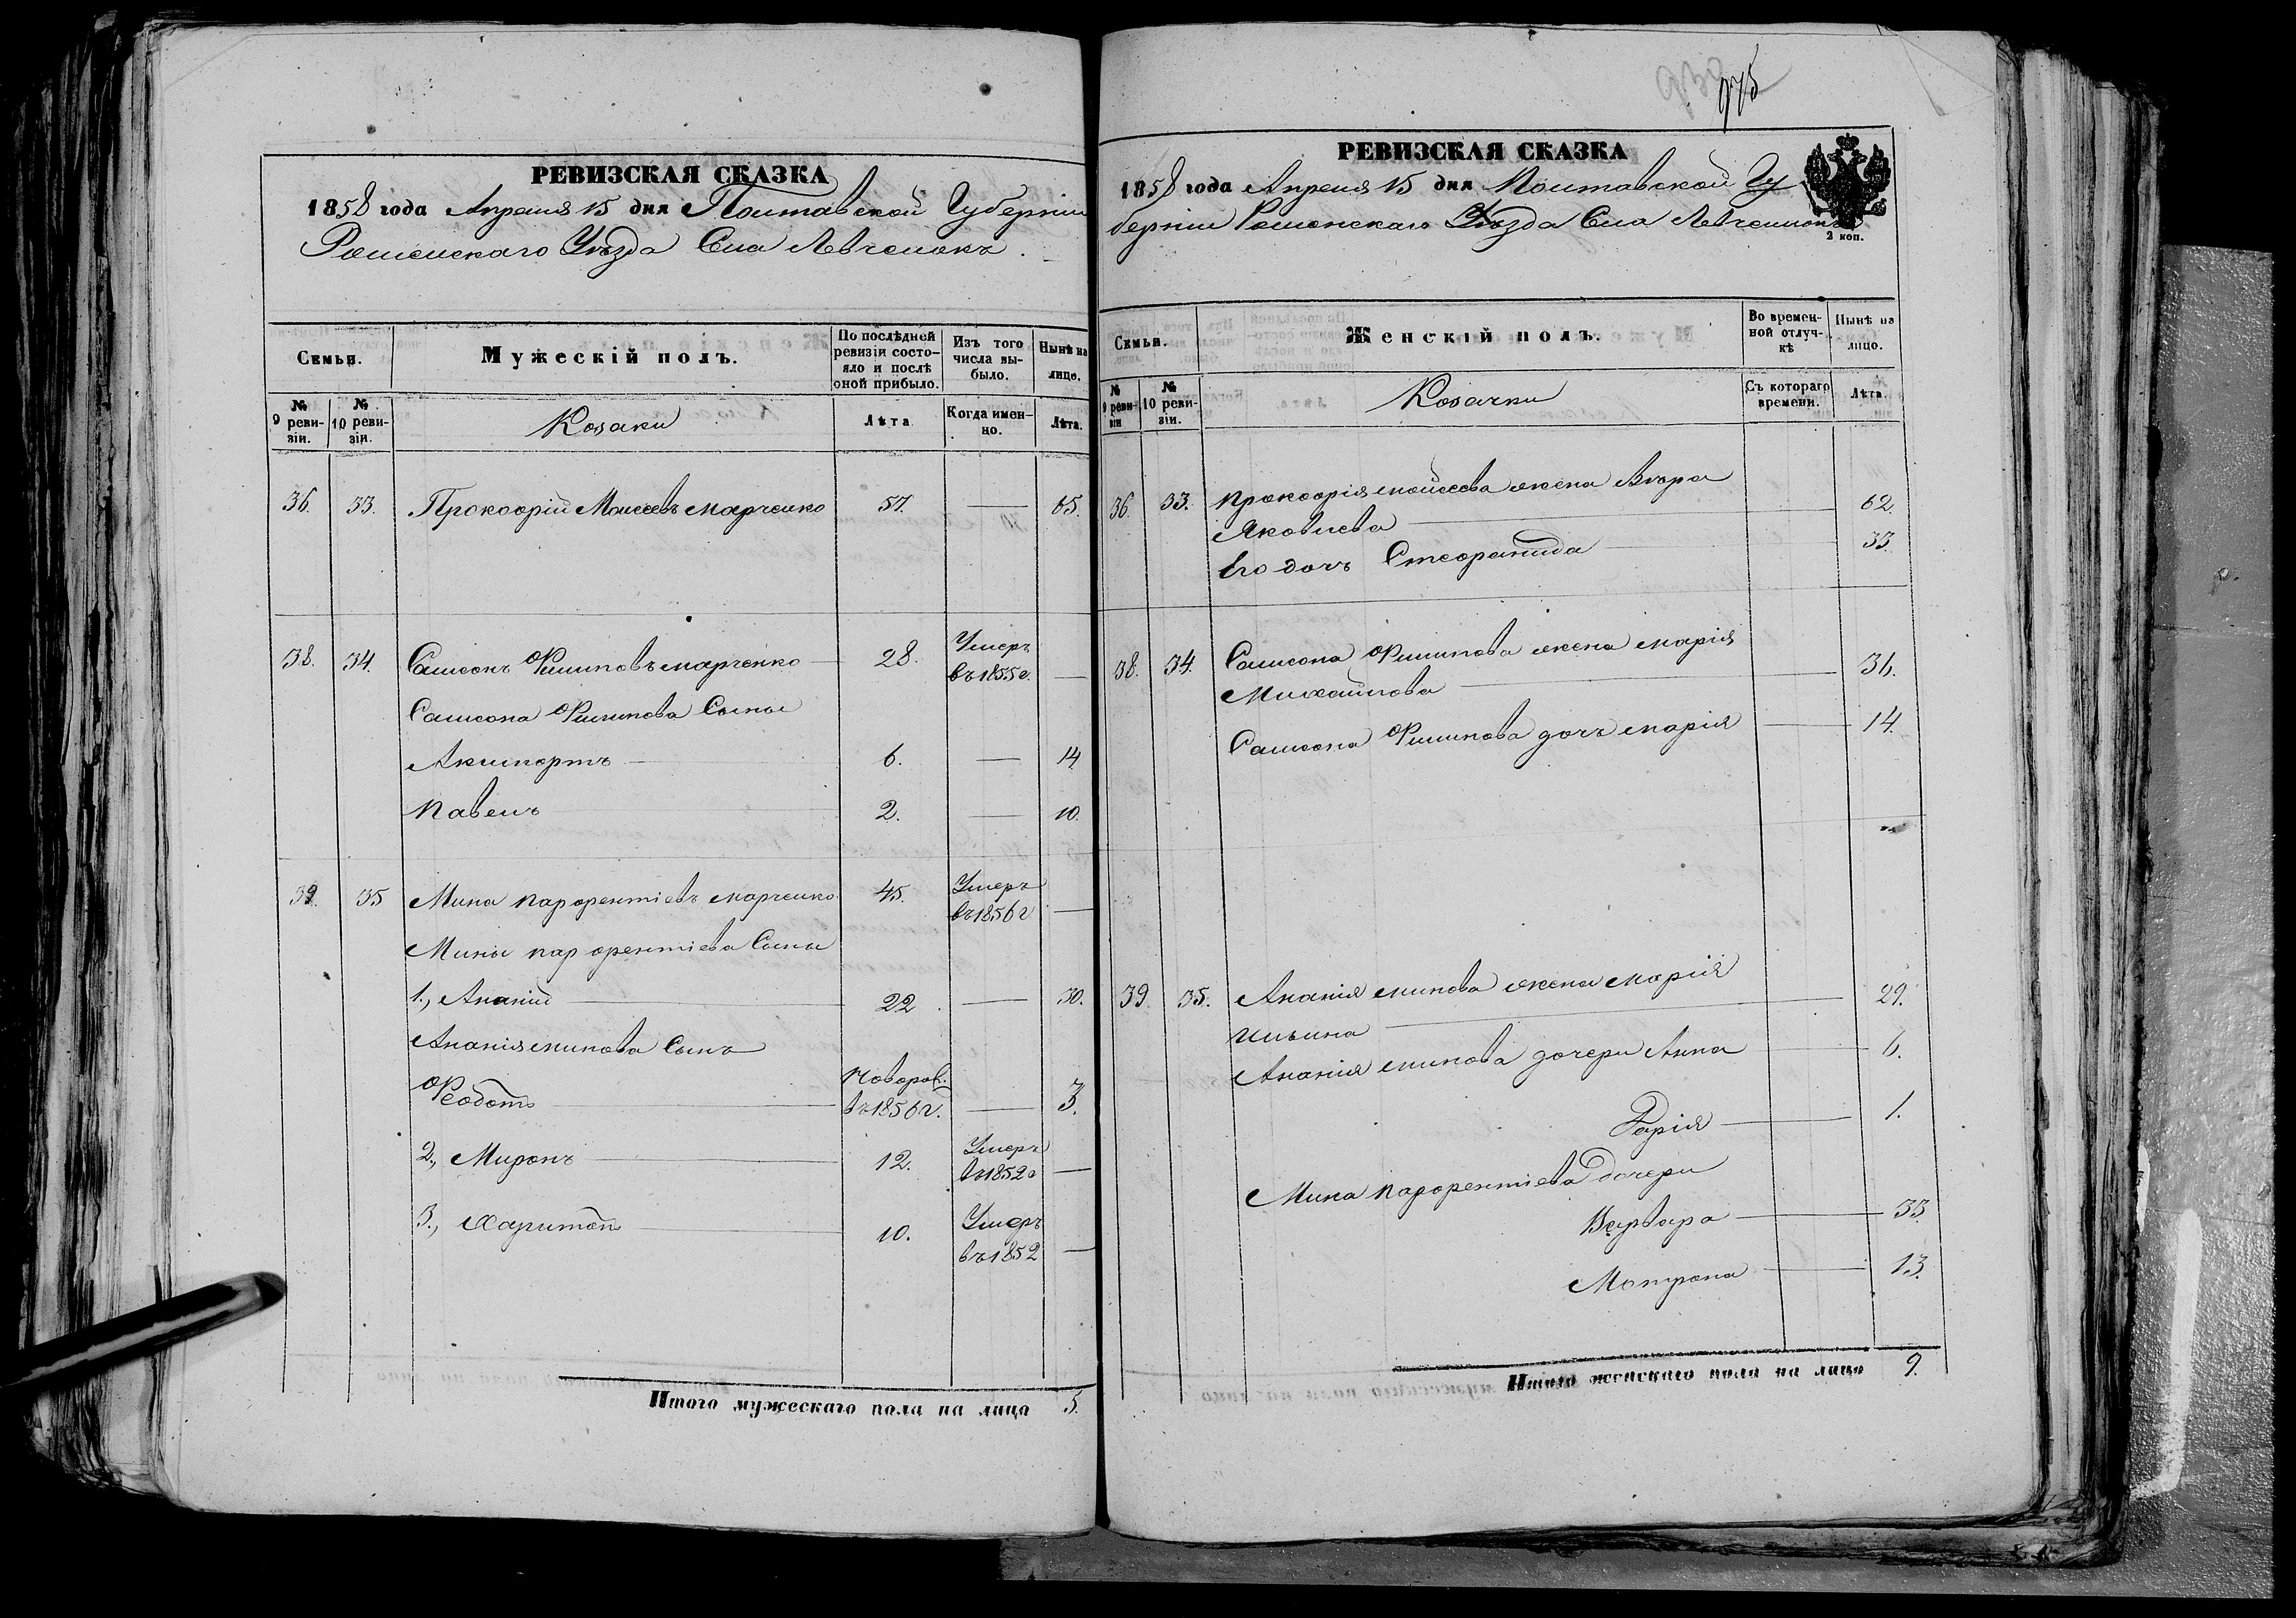 РЕВИЗСКАЯ СКАЗКА
1858 года Апреля 15 дня Полтавской Губерніи
Роменскаго Уѣзда Села Левченокъ.
Семьи.
Мужескій полъ.
По послѣдней ревизіи состояло и послѣ оной прибыло.
Изъ того числа выбыло.
Нынѣ на лице.
№ 9 ревизіи.
№ 10 ревизіи.
Козаки
Лѣта
Когда именно.
Лѣта.
36. 33. Прокофій Моисеевъ Марченко 57. — 65.
38. 34. Самсонъ Филиповъ Марченко — 28. Умеръ въ 1855 г. —
Самсона Филипова Сыны
Акилортъ — 6. — 14
Павелъ 2. — 10.
39. 35 Мина Парфентіевъ Марченко 45. Умеръ въ 1856 г —
Мины Парфентіева Сыны
1., Ананій — 22 — 30.
Ананія Минова Сынъ
Федотъ — Новорож. въ 1856 г. — 3.
2., Миронъ — 12. Умеръ въ 1852 г —
3., Харитонъ — 10. Умеръ въ 1852 —
Итого мужескаго пола на лицо 5.
975
РЕВИЗСКАЯ СКАЗКА
1858 года Апреля 15 дня Полтавской Гу
берніи Роменскаго Уѣзда Села Левченокъ
2 коп.
Семьи.
Женскій полъ.
Во временной отлучкѣ
Нынѣ на лицо.
№ 9 ревизіи
№ 10 ревизіи.
Козачки
Съ котораго времени.
Лѣта.
36. 33. Прокофія Мойсеева жена Вѣра
Яковлева — 62.
Его дочь Стефанида — 33
38. 34. Самсона Филипова жена Марія
Михайлова — 36.
Самсона Филипова дочь Марія — 14.
39 35. Ананія Минова жена Марія
Ильина — 29.
Ананія Минова дочери Анна — 6.
Дарія — 1.
Мина Парфентіева Дочери
Варвара — 33
Матрона — 13.
Итого женскаго пола на лицо 9.